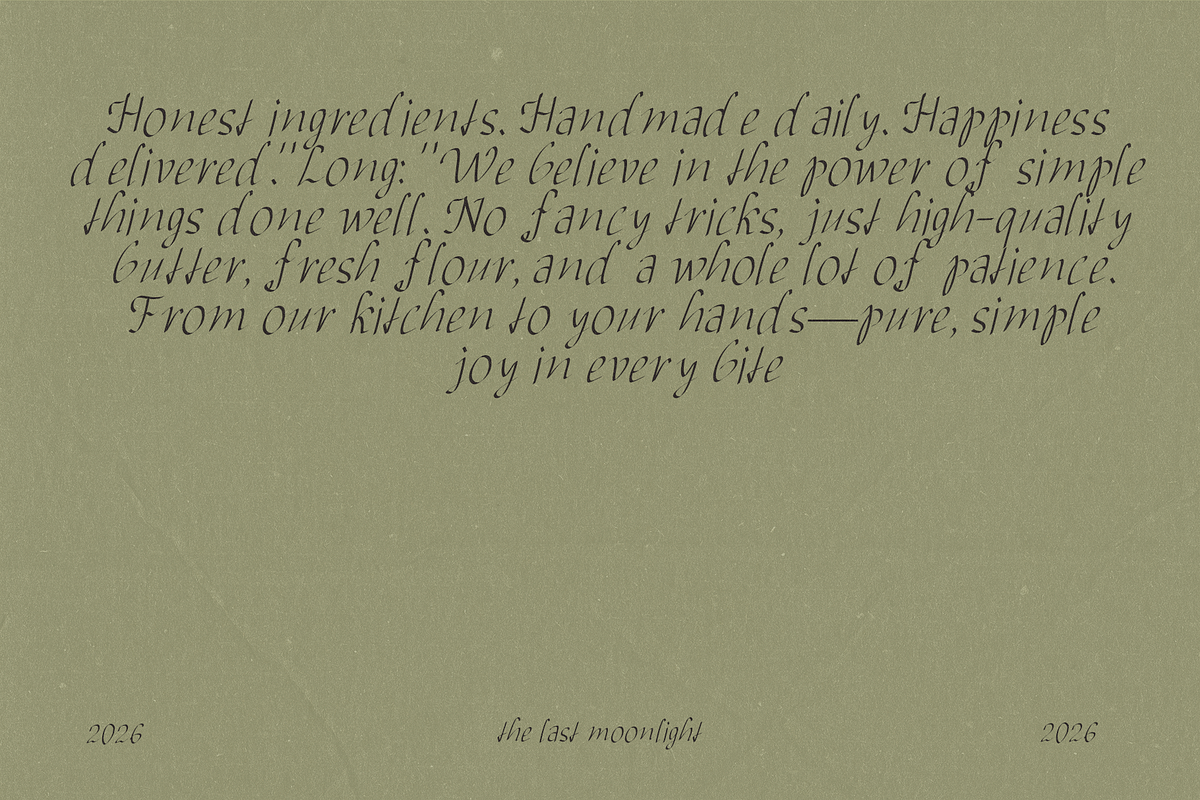 Honest ingredients. Handmade daily. Happiness
delivered." Long: "We believe in the power of simple
things done well. No fancy tricks, just high-quality
butter, fresh flour, and a whole lot of patience.
From our kitchen to your hands—pure, simple
joy in every bite
2026
the last moonlight
2026